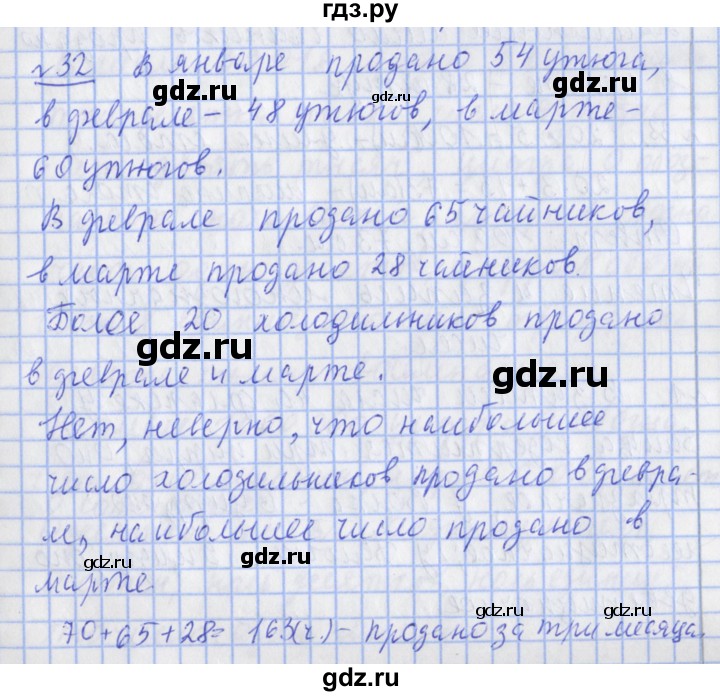 гдз.ру
№32 В январе продано 54 утюга,
в феврале - 48 утюгов, в марте -
60 утюгов.
В феврале продано 65 чайников,
в марте продано 28 чайников.
Более 20 холодильников продано
в феврале и марте.
Нет, неверно, что наибольшее
число холодильников продано в февра-
ле, наибольшее число продано в
марте.
70+65+28= 163(ч.) - продано за три месяца.
gdz.ru
gdz.ru
gdz.ru
gdz.ru
gdz.ru
gdz.ru
gdz.ru
gdz.ru
gdz.ru
gdz.ru